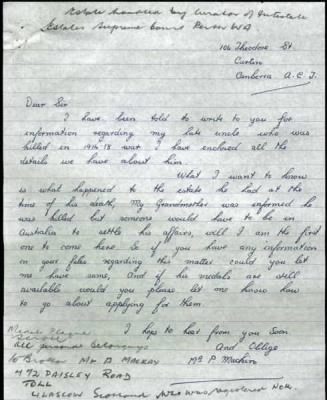 Estate handled by Curator of Intestate
Estates Supreme Court Perth WA
106 Theodore St.
Curtin
Canberra A.C.T.
Dear Sir
I have been told to write to you for
information regarding my late uncle who was
killed in 1914-18 war. I have enclosed all the
details we have about him.
What I want to know
is what happened to the estate he had at the
time of his death, My Grandmother was informed he
was killed but someone would have to be in
Australia to settle his affairs, well I am the first
one to come here & if you have any information
in your files regarding this matter could you let
me have same, And if his medals are still
available would you please let me know how
to go about applying for them.
I hope to hear from you soon.
And Oblige
Mrs P.
Plaque
Scroll
All personal belongings
to Brother Mr A Mackay
472 Paisley Road
Toll
Glasgow Scotland who was registered NOK.